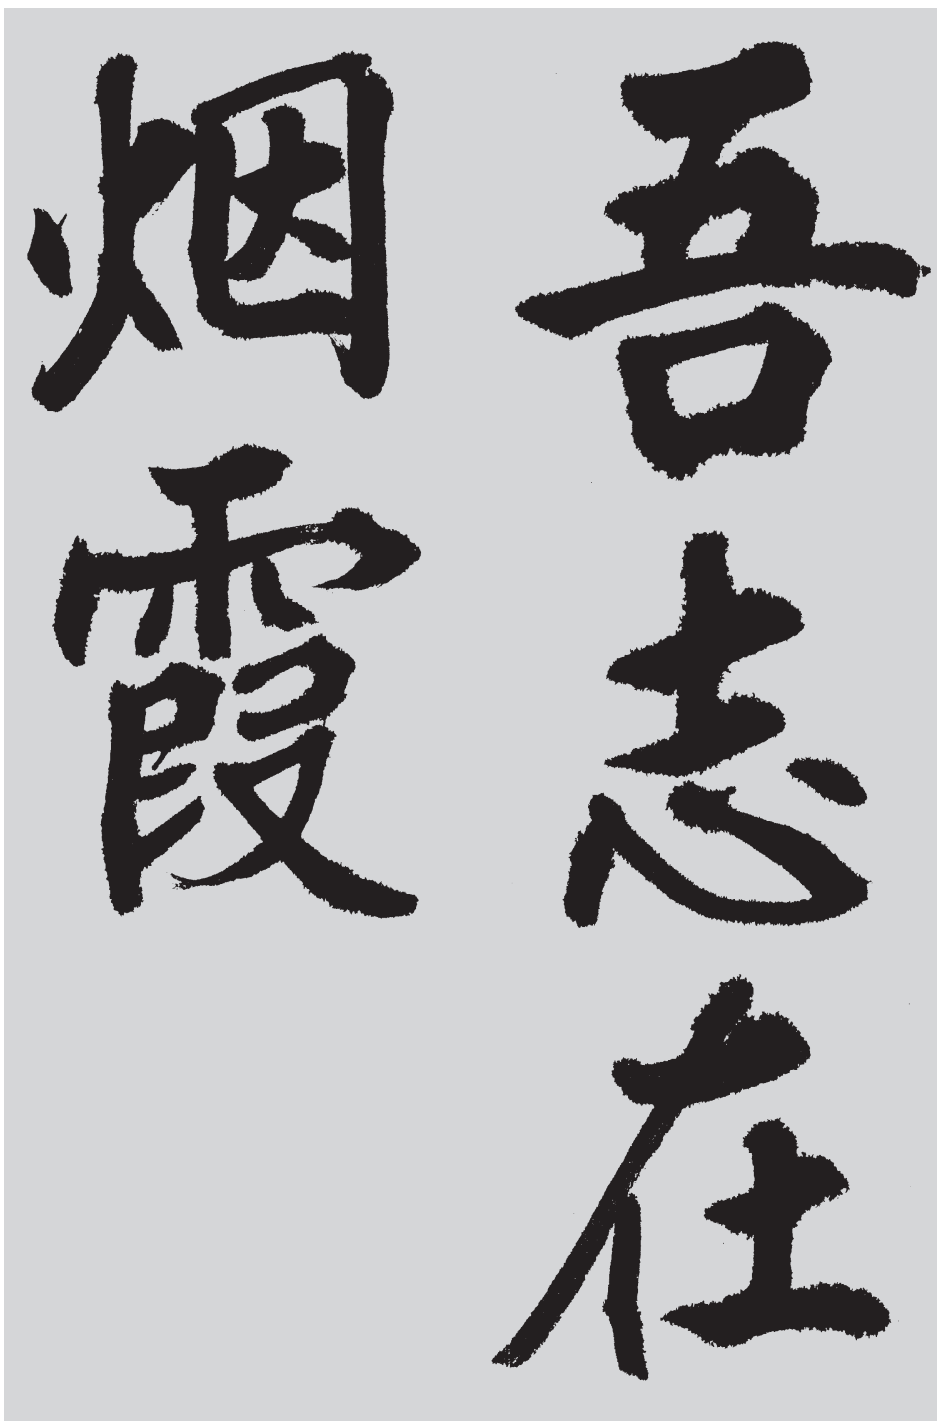 吾志在
烟霞